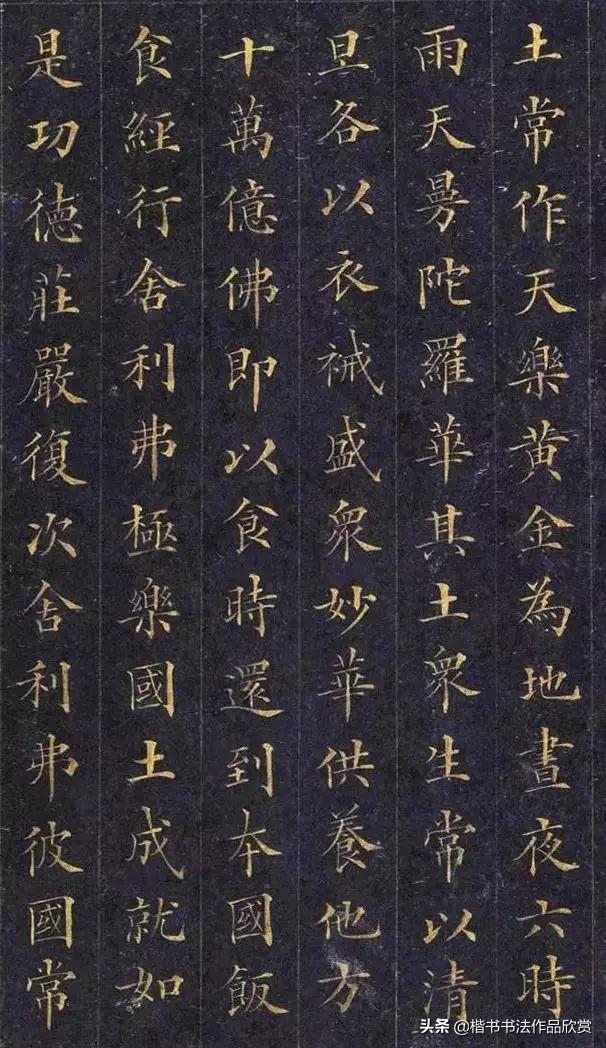 土常作天樂黄金為地晝夜六時
雨天曼陀羅華其土衆生常以清
旦各以衣裓盛衆妙華供養他方
十萬億佛即以食時還到本國飯
食經行舍利弗極樂國土成就如
是功徳莊嚴復次舍利弗彼國常
头条 @楷书书法作品欣赏